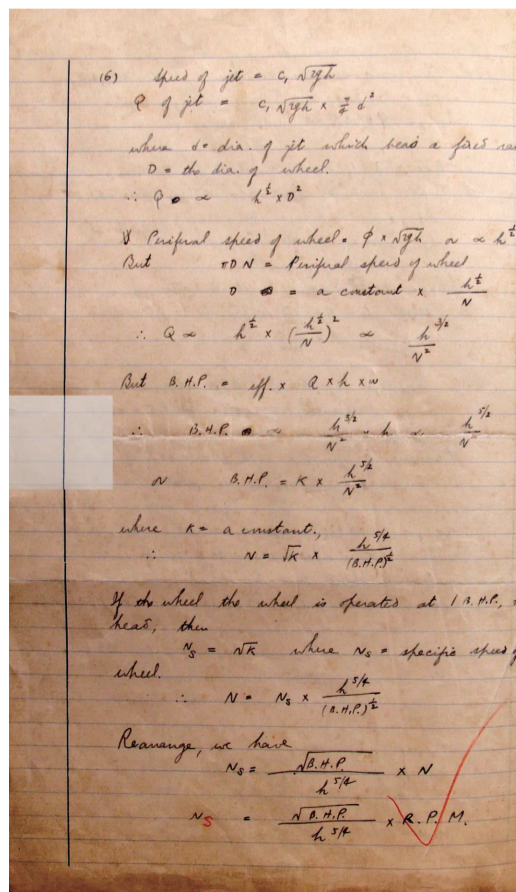 (6) Speed of jet = c, √2gh
Q of jet = c, √2gh x π/4 d²
where d = dia. of jet which bears a fixed
D = the dia. of wheel.
∴ Q ∝ h^½ x D²
Periferal speed of wheel = φ x √2gh or ∝ h^½
But πDN = Periferal speed of wheel
D = a constant x h^½/N
∴ Q ∝ h^½ x (h^½/N)² ∝ h^3/2/N²
But B.H.P. = eff. x Q x h x w
∴ B.H.P. ∝ h^3/2/N² x h ∝ h^5/2/N²
or B.H.P. = K x h^5/2/N²
where K = a constant.,
∴ N = √K x h^5/4/(B.H.P.)^½
If the wheel the wheel is operated at 1 B.H.P.,
head, then
Ns = √K where Ns = specific speed
wheel.
∴ N = Ns x h^5/4/(B.H.P.)^½
Rearrange, we have
Ns = √B.H.P./h^5/4 x N
NS = √B.H.P./h^5/4 x R.P.M.